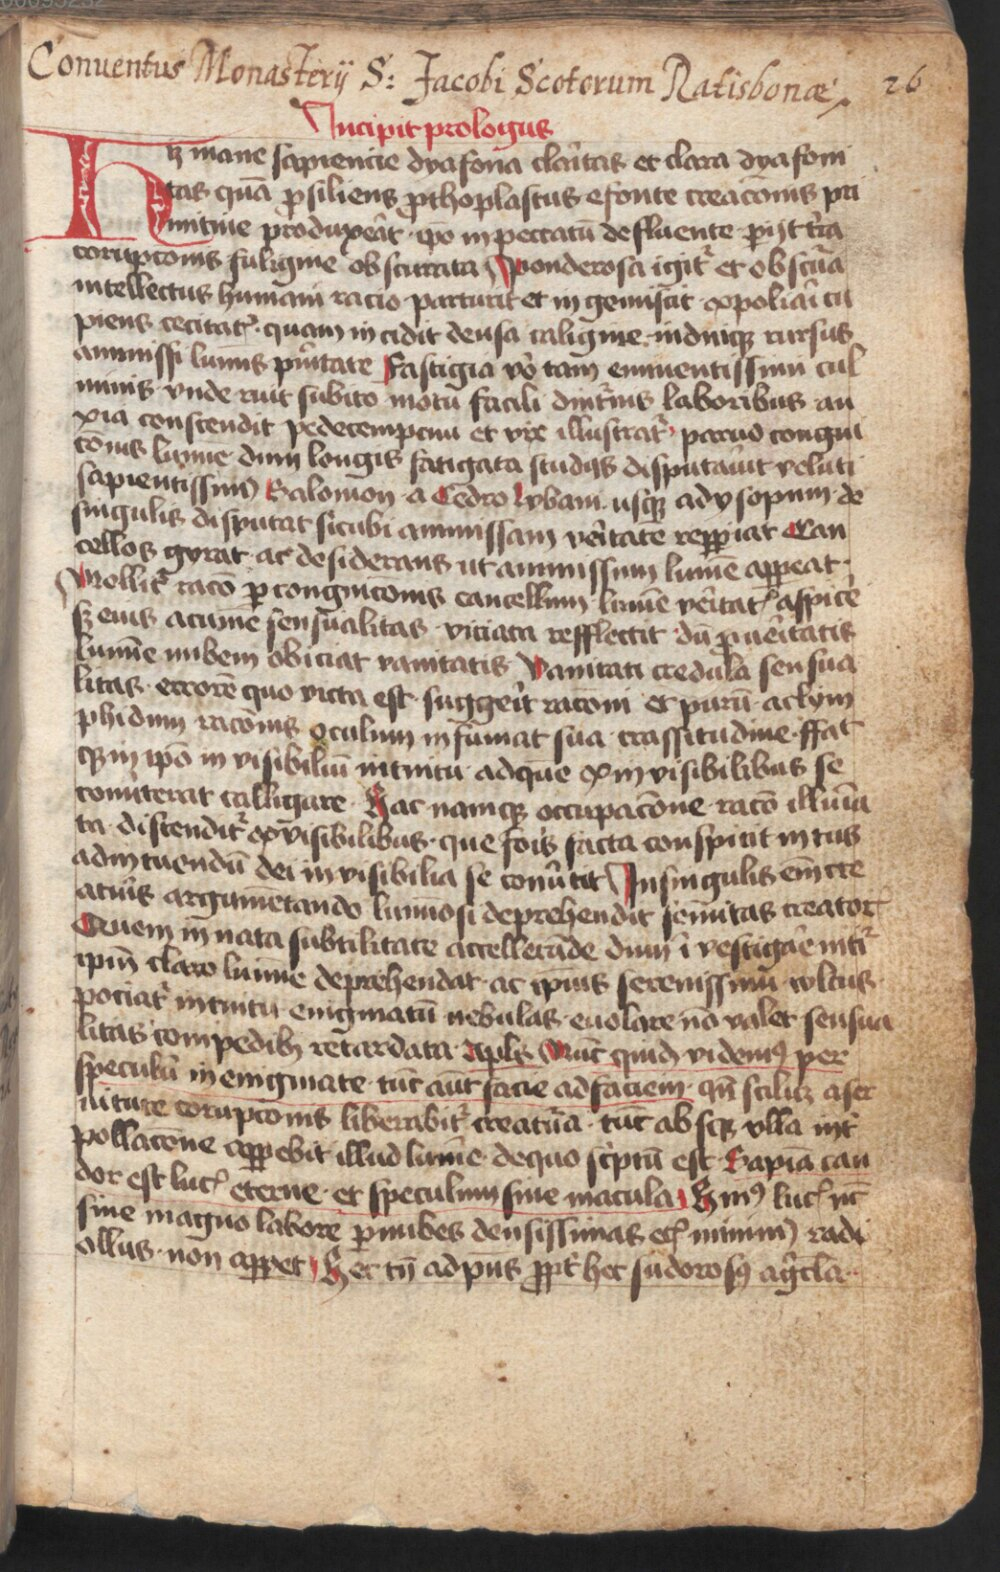 Conuentus Monasterij S: Jacobi Scotorum Ratisbonæ 26
Incipit prologus
Hmane sapiencie dyafona claritas et clara dyafoni
tas quā ꝓsiliens ꝓthoplastus e fonte creacōnis pri
mitiue produxerat ipō in peccatū defluente perijt
corrupcōnis fuligine obscurata Ponderosa igitr et obscura
intellectus humani racio parturit et ingemiscit expoliari cu
piens cecitatis quam incidit densa caligine induique rursus
ammissi luminis puritate Fastigia vero tam eminentissimi cul
minis vnde ruit subito motu facili diuturnis laboribus an
xia conscendit pedetempcim et vix illustratr paruo cogni
conis lumine dum longis fatigata studijs disputauit veluti
sapientissimus Salomon a Cedro lybani usque ad ysopum de
singulis disputat sicubi ammissam veritatē repperiat Can
cellos gyrat ac desiderans ut ammissum lumen appareat
Mollitr racō per congnicōnis cancellum lumē veritatis aspicere
sed eius acumē sensualitas viciata refflectit dū puritatis
lumine nubem obiciat vanitatis Vanitati credula sensua
litas errorē quo victa est suggerit racōni et purū ac lym
phidum racōnis oculum infumat sua crassitudine
in ipō inuisibiliū intuitu adque ex in visibilibus se
comiterat calligare Hac namque occupacōne racō illumina
ta distenditr ex visibilibus que foris facta conspicit intus
ad intuendū dei inuisibilia se conuertit In singulis enim cre
aturis argumētando luminosi deprehendit semitas creatoris
Quem innata subtilitate accellerāde dum inuestigare nititr
ipm claro lumine deprehendat ac ipsius serenissimi vultus
pociatr intuitu enigmatū nebulas euolare nō valet sensua
litas compedibus retardata Apls Nūc quid videmus per
speculū in enigmate tūc aūt facie ad faciem qn scilicet a ser
uitute corrupcōnis liberabitr creatura tūc absque vlla inter
pollacōne apparebit illud lumē de quo scriptū est Sapia can
dor est lucis eterne et speculum sine macula Huius lucis
sine magno labore per nubes densissimas minimus radi
ollus non apparet Hec ad hec sudorosus